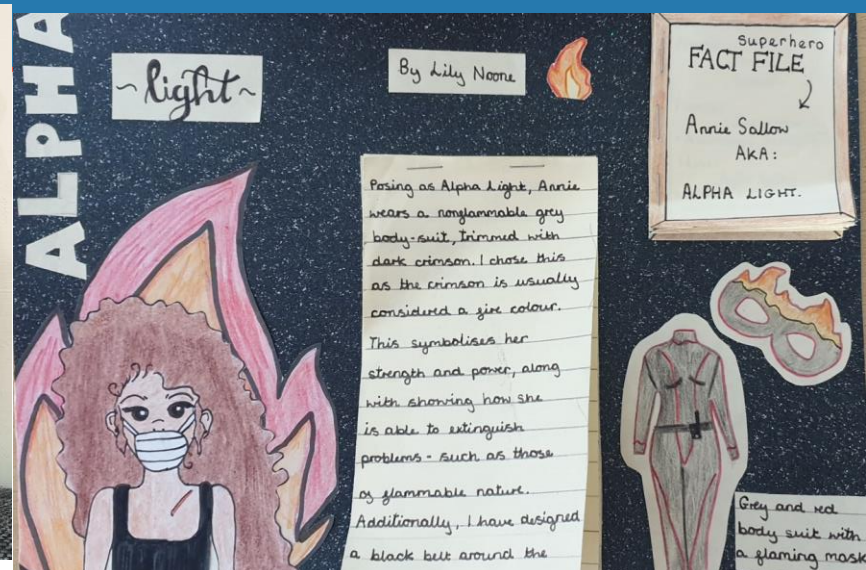 ALPHA
~light~
By Lily Noone
Superhero
FACT FILE
Annie Sallow
AKA:
ALPHA LIGHT.
Posing as Alpha Light, Annie
wears a nonflammable grey
body-suit, trimmed with
dark crimson. I chose this
as the crimson is usually
considered a fire colour.
This symbolises her
strength and power, along
with showing how she
is able to extinguish
problems - such as those
of flammable nature.
Additionally, I have designed
a black belt around the
Grey and red
body suit with
a flaming mask